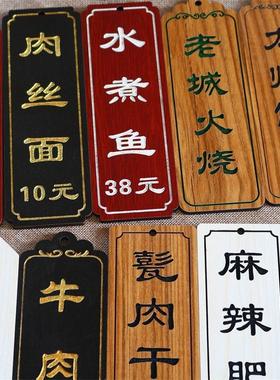 肉丝面
10元
水煮鱼
38元
老城火烧
牛肉
甏肉干
麻辣肥